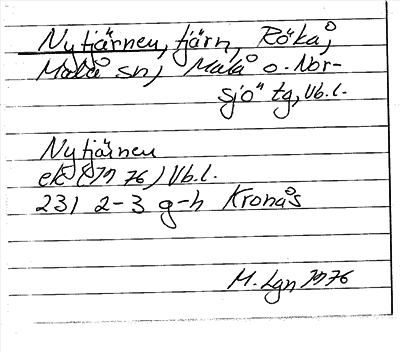 Nytjärnen, tjärn, Rökå,
Malå sn, Malå o. Nor-
sjö tg, Vb.l.
Nytjärnen
ek (1976) Vb.l.
231 2-3 g-h Kronås
M. Lgn 1976